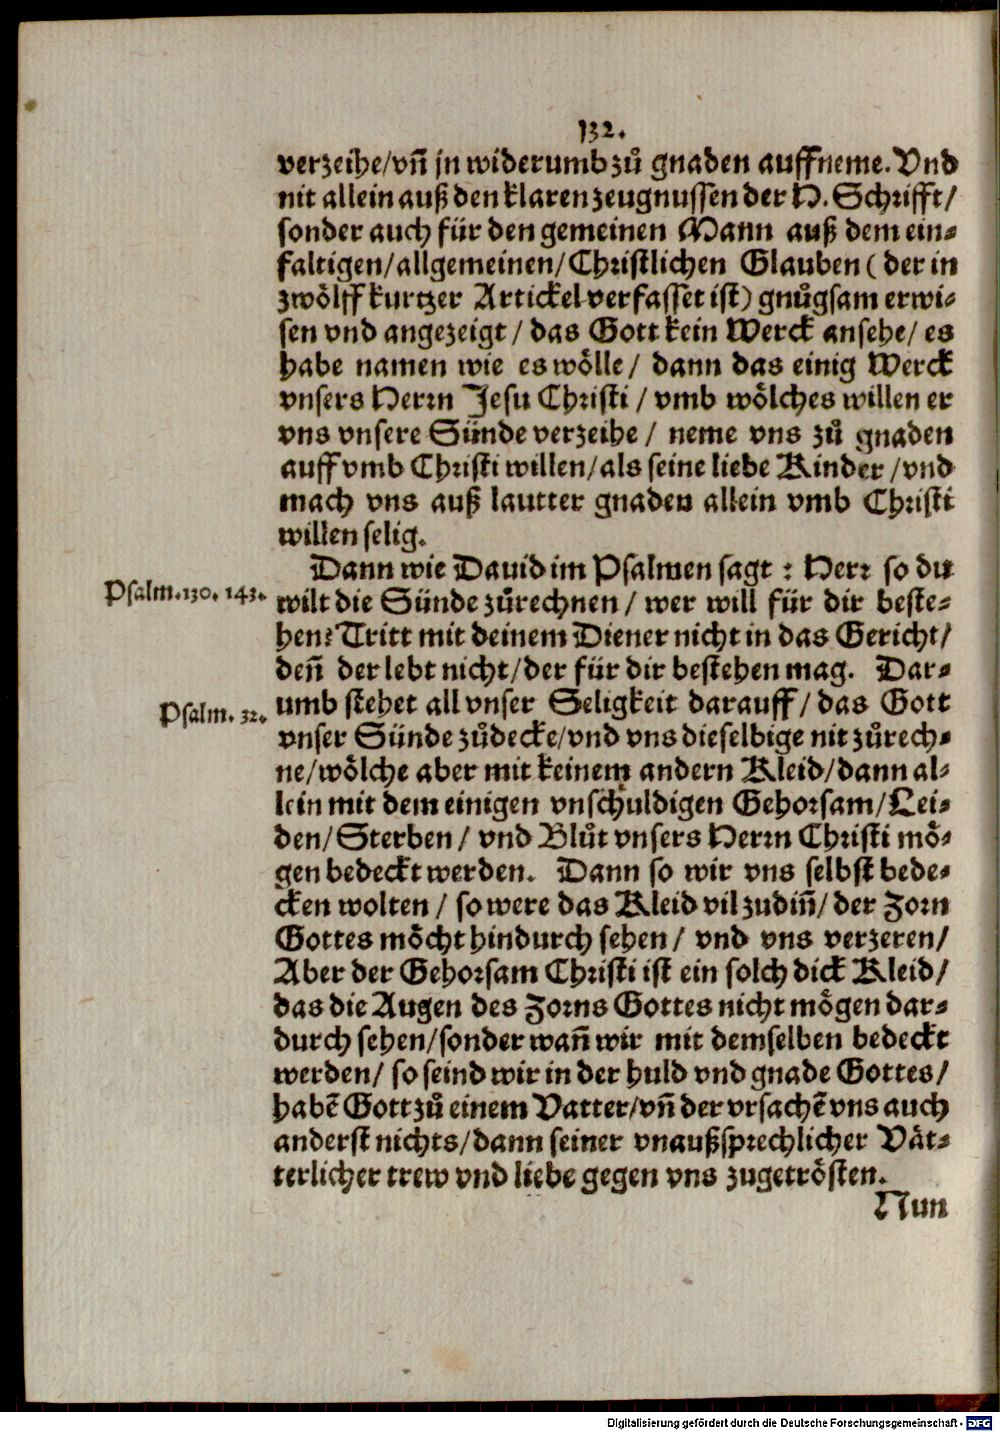 132.
verzeihe/vñ jn widerumb zů gnaden auffneme. Vnd
nit allein auß den klaren zeugnussen der H. Schrifft/
sonder auch für den gemeinen Mann auß dem ein-
faltigen/allgemeinen/Christlichen Glauben (der in
zwölff kurtzer Artickel verfasset ist) gnůgsam erwi-
sen vnd angezeigt/ das Gott kein Werck ansehe/ es
habe namen wie es wölle/ dann das einig Werck
vnsers Herrn Jesu Christi/ vmb wölches willen er
vns vnsere Sünde verzeihe/ neme vns zů gnaden
auff vmb Christi willen/als seine liebe Kinder/vnd
mach vns auß lautter gnaden allein vmb Christi
willen selig.
Dann wie Dauid im Psalmen sagt: Herr so du
Psalm. 130. 143.
wilt die Sünde zůrechnen/ wer will für dir beste-
hen? Tritt mit deinem Diener nicht in das Gericht/
deñ der lebt nicht/der für dir bestehen mag. Dar-
Psalm. 32.
umb stehet all vnser Seligkeit darauff/ das Gott
vnser Sünde zůdecke/vnd vns dieselbige nit zůrech-
ne/wölche aber mit keinem andern Kleid/dann al-
lein mit dem einigen vnschuldigen Gehorsam/Lei-
den/Sterben/ vnd Blůt vnsers Herrn Christi mö-
gen bedeckt werden. Dann so wir vns selbst bede-
cken wolten/ so were das Kleid vil zu diñ/ der Zorn
Gottes möcht hindurch sehen/ vnd vns verzeren/
Aber der Gehorsam Christi ist ein solch dick Kleid/
das die Augen des Zorns Gottes nicht mögen dar-
durch sehen/sonder wañ wir mit demselben bedeckt
werden/ so seind wir in der huld vnd gnade Gottes/
habẽ Gott zů einem Vatter/vñ der vrsachẽ vns auch
anderst nichts/dann seiner vnaußsprechlicher Vät-
terlicher trew vnd liebe gegen vns zugetrösten.
Nun
Digitalisierung gefördert durch die Deutsche Forschungsgemeinschaft - DFG